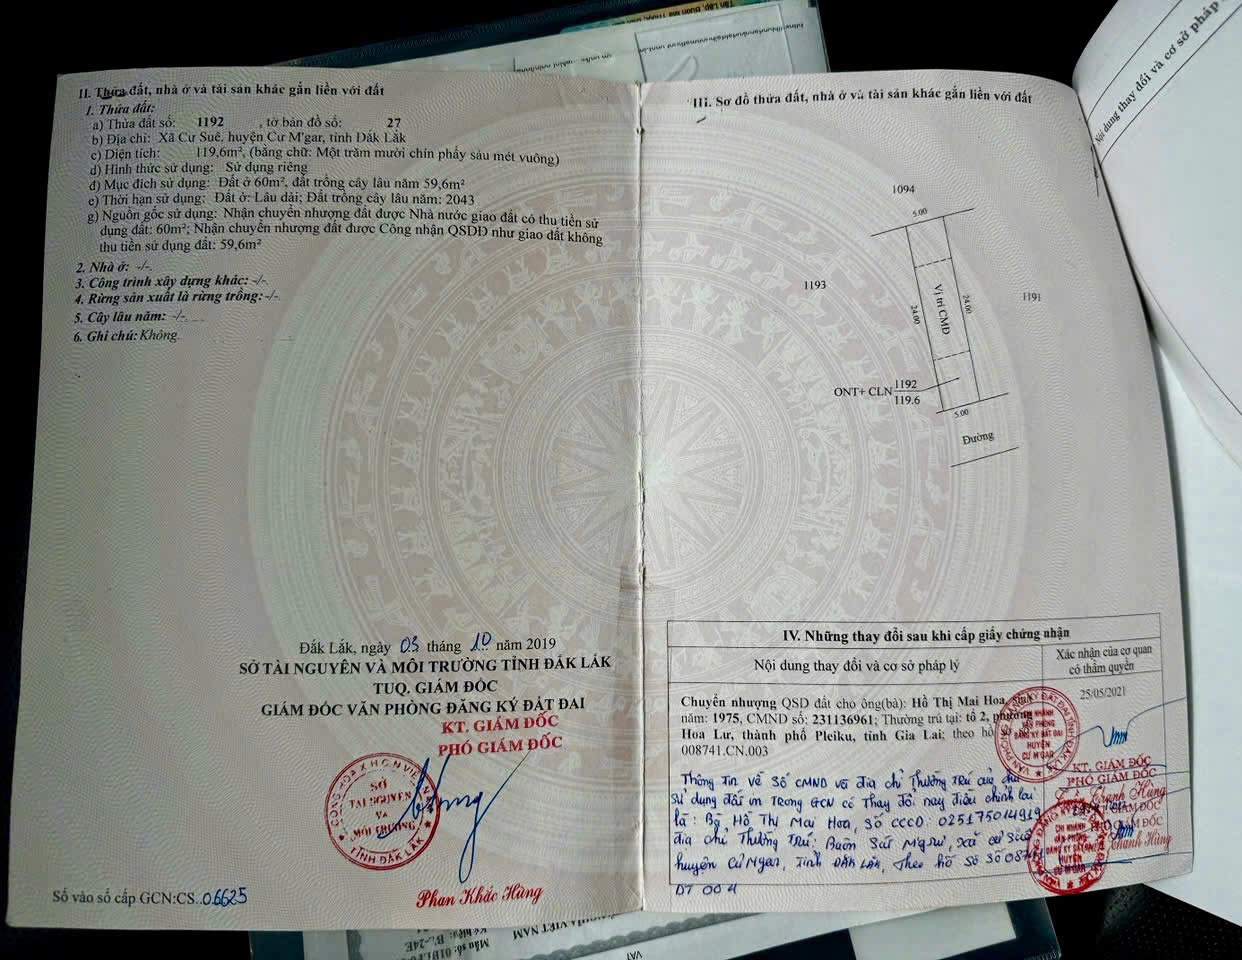 II. Thửa đất, nhà ở và tài sản khác gắn liền với đất
1. Thửa đất:
a) Thửa đất số: 1192 , tờ bản đồ số: 27
b) Địa chỉ: Xã Cư Suê, huyện Cư M'gar, tỉnh Đắk Lắk
c) Diện tích: 119,6m², (bằng chữ: Một trăm mười chín phẩy sáu mét vuông)
d) Hình thức sử dụng: Sử dụng riêng
đ) Mục đích sử dụng: Đất ở 60m², đất trồng cây lâu năm 59,6m²
e) Thời hạn sử dụng: Đất ở: Lâu dài; Đất trồng cây lâu năm: 2043
g) Nguồn gốc sử dụng: Nhận chuyển nhượng đất được Nhà nước giao đất có thu tiền sử
dụng đất: 60m²; Nhận chuyển nhượng đất được Công nhận QSDĐ như giao đất không
thu tiền sử dụng đất: 59,6m²
2. Nhà ở: -/-.
3. Công trình xây dựng khác: -/-
4. Rừng sản xuất là rừng trồng: -/-.
5. Cây lâu năm: -/-.
6. Ghi chú: Không.
Đắk Lắk, ngày 03 tháng 10 năm 2019
SỞ TÀI NGUYÊN VÀ MÔI TRƯỜNG TỈNH ĐẮK LẮK
TUQ. GIÁM ĐỐC
GIÁM ĐỐC VĂN PHÒNG ĐĂNG KÝ ĐẤT ĐAI
KT. GIÁM ĐỐC
PHÓ GIÁM ĐỐC
SỞ
TÀI NGUYÊN
VÀ
MÔI TRƯỜNG
TỈNH ĐẮK LẮK
Phan Khắc Hùng
Số vào sổ cấp GCN:CS..06625
III. Sơ đồ thửa đất, nhà ở và tài sản khác gắn liền với đất
1094
5.00
1193
1191
24.00
Vị trí CMĐ
24.00
ONT+ CLN 1192
119.6
5.00
Đường
IV. Những thay đổi sau khi cấp giấy chứng nhận
Nội dung thay đổi và cơ sở pháp lý
Xác nhận của cơ quan
có thẩm quyền
Chuyển nhượng QSD đất cho ông(bà): Hồ Thị Mai Hoa, sinh
năm: 1975, CMND số: 231136961; Thường trú tại: tổ 2, phường
Hoa Lư, thành phố Pleiku, tỉnh Gia Lai; theo hồ
008741.CN.003
25/05/2021
CHI NHÁNH
VĂN PHÒNG
ĐĂNG KÝ ĐẤT ĐAI
HUYỆN
CƯ M'GAR
KT. GIÁM ĐỐC
PHÓ GIÁM ĐỐC
Thông tin về số CMND và địa chỉ thường trú của chủ
sử dụng đất in trong GCN có thay đổi nay điều chỉnh lại
là: Bà Hồ Thị Mai Hoa, Số CCCD: 025175014919
địa chỉ thường trú: Buôn Sút M'grư, xã Cư Suê
huyện Cư Mgar, tỉnh Đắk Lắk, Theo hồ sơ số 0874
ĐT 004
GIÁM ĐỐC
PHÓ GIÁM ĐỐC
CHI NHÁNH
VĂN PHÒNG
ĐĂNG KÝ ĐẤT ĐAI
HUYỆN
CƯ M'GAR
Nội dung thay đổi và cơ sở pháp
VIỆT NAM
VAT